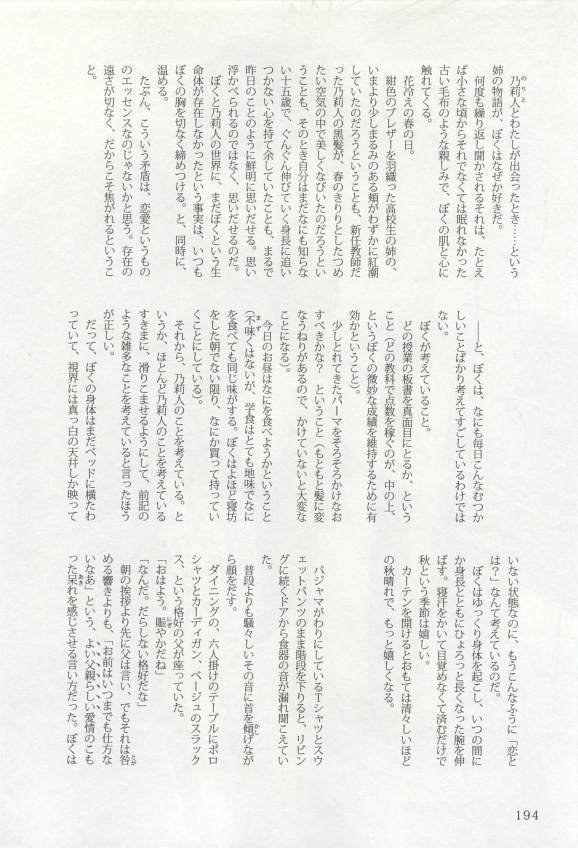 乃莉人とわたしが出会ったとき……という
姉の物語が、ぼくはなぜか好きだ。
何度も繰り返し聞かされるそれは、たとえ
ば小さな頃からそれでなくては眠れなかった
古い毛布のような親しみで、ぼくの肌と心に
触れてくる。
花冷えの春の日。
紺色のブレザーを羽織った高校生の姉の、
いまより少しまるみのある頰がわずかに紅潮
していたのだろうということも、新任教師だ
った乃莉人の黒髪が、春のきりりとしたつめ
たい空気の中で美しくなびいたのだろうとい
うことも、そのとき自分はまだなにも知らな
い十五歳で、ぐんぐん伸びていく身長に追い
つかない心を持て余していたことも、まるで
昨日のことのように鮮明に思いだせる。思い
浮かべられるのではなく、思いだせるのだ。
ぼくと乃莉人の世界に、まだぼくという生
命体が存在しなかったという事実は、いつも
ぼくの胸を切なく締めつける。と、同時に、
温める。
たぶん、こういう矛盾は、恋愛というもの
のエッセンスなのじゃないかと思う。存在の
遠さが切なく、だからこそ焦がれるというこ
と。
――と、ぼくは、なにも毎日こんなむつか
しいことばかり考えてすごしているわけでは
ない。
ぼくが考えていること。
どの授業の板書を真面目にとるか、という
こと（どの教科で点数を稼ぐのが、中の上、
というぼくの微妙な成績を維持するために有
効かということ）。
少しとれてきたパーマをそろそろかけなお
すべきかな？　ということ（もともと髪に変
なうねりがあるので、かけていないと大変な
ことになる）。
今日のお昼はなにを食べようかということ
（不味くはないが、学食はとても地味でなに
を食べても同じ味がする。ぼくはよほど寝坊
をした朝でない限り、なにか買って持ってい
くことにしている）。
それから、乃莉人のことを考えている。と
いうか、ほとんど乃莉人のことを考えている
すきまに、滑りこませるようにして、前記の
ような雑多なことを考えていると言ったほう
が正しい。
だって、ぼくの身体はまだベッドに横たわ
っていて、視界には真っ白の天井しか映って
いない状態なのに、もうこんなふうに「恋と
は？」なんて考えているのだ。
ぼくはゆっくり身体を起こし、いつの間に
か身長とともにひょろっと長くなった腕を伸
ばす。寝汗をかいて目覚めなくて済むだけで
秋という季節は嬉しい。
カーテンを開けるとおもては清々しいほど
の秋晴れで、もっと嬉しくなる。
パジャマがわりにしているＴシャツとスウ
ェットパンツのまま階段を下りると、リビン
グに続くドアから食器の音が漏れ聞こえてい
た。
普段よりも騒々しいその音に首を傾げなが
ら顔をだす。
ダイニングの、六人掛けのテーブルにポロ
シャツとカーディガン、ベージュのスラック
ス、という格好の父が座っていた。
「おはよう。賑やかだね」
「なんだ。だらしない格好だな」
朝の挨拶より先に父は言い、でもそれは咎
める響きよりも、「お前はいつまでも仕方な
いなあ」という、よい父親らしい愛情のこも
った呆れを感じさせる言い方だった。ぼくは
194